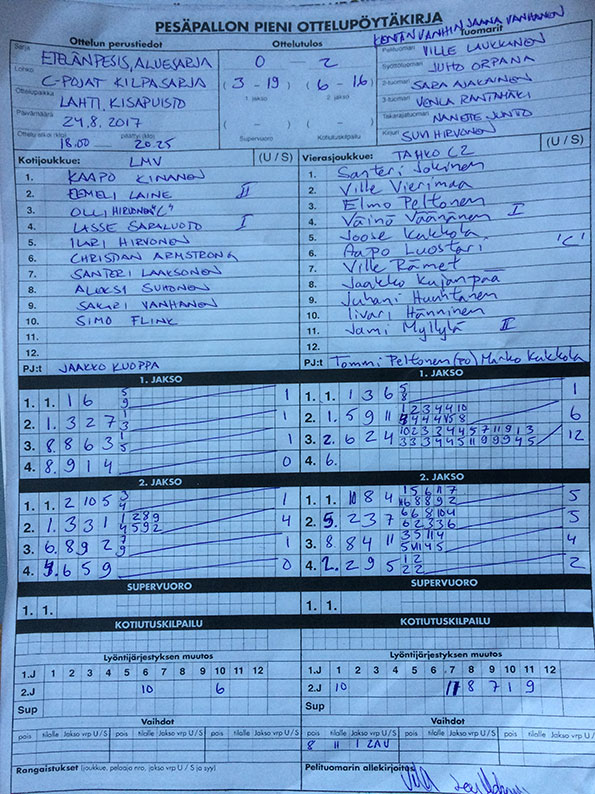 PESÄPALLON PIENI OTTELUPÖYTÄKIRJA
Ottelun perustiedot Ottelutulos Tuomarit
KENTÄN VANHIN JAANA VANHANEN
Sarja ETELÄNPESIS, ALUESARJA 0 2 Pelituomari VILLE LAUKKANEN
Lohko C-POJAT KILPASARJA (3-19) (6-16) Syöttötuomari JUHO ORPANA
Ottelupaikka LAHTI, KISAPUISTO 1. jakso 2. jakso 2-tuomari SARA AJAKAINEN
Päivämäärä 24.8.2017 ( - ) ( - ) 3-tuomari VENLA RANTAMÄKI
Ottelu alkoi (klo) päättyi (klo) Supervuoro Kotiutuskilpailu Takarajatuomari NANETTE JUNTO
18.00 20.25 Kirjuri SUVI HIRVONEN
Kotijoukkue: LMV (U / S)
1. KAAPO KINANEN
2. EEMELI LAINE II
3. OLLI HIRVONEN "C"
4. LASSE SARALUOTO I
5. ILARI HIRVONEN
6. CHRISTIAN ARMSTRONG
7. SANTERI LAAKSONEN
8. ALEKSI SUHONEN
9. SAKARI VANHANEN
10. SIMO FLINK
11.
12.
PJ:t JAAKKO KUOPPA
Vierasjoukkue: TAHKO C2 (U / S)
1. Santeri Jokinen
2. Ville Vierimaa
3. Elmo Peltonen
4. Väinö Väänänen I
5. Joose Kukkola
6. Aapo Luostari "C"
7. Ville Rämet
8. Jaakko Kujanpää
9. Juhani Huuhtanen
10. Iivari Hänninen
11. Jami Myllylä II
12.
PJ:t Tommi Peltonen (PO) Marko Kukkola
1. JAKSO
1. 1. 1 6 5 9 1
2. 1. 3 2 7 1 3 1
3. 8. 8 6 3 1 5 1
4. 8. 9 1 4 0
1. JAKSO
1. 1. 1 3 6 5 8 1
2. 1. 5 9 11 6
3. 2. 6 2 4 12
4. 6.
2. JAKSO
1. 1. 2 10 5 3 4 1
2. 1. 3 3 1 4
3. 6. 8 9 2 7 9 1
4. 6 5 9 0
2. JAKSO
1. 1. 10 8 4 5
2. 5. 2 3 7 5
3. 8. 8 4 11 4
4. 2. 2 9 5 1 2 2 2 2
SUPERVUORO
1. 1.
SUPERVUORO
1. 1.
KOTIUTUSKILPAILU
KOTIUTUSKILPAILU
Lyöntijärjestyksen muutos
1.J 1 2 3 4 5 6 7 8 9 10 11 12
2.J 10 6
Sup
Lyöntijärjestyksen muutos
1.J 1 2 3 4 5 6 7 8 9 10 11 12
2.J 10 11 8 7 1 9
Sup
Vaihdot
pois tilalle Jakso vrp U / S pois tilalle Jakso vrp U / S pois tilalle Jakso vrp U / S
Vaihdot
pois tilalle Jakso vrp U / S pois tilalle Jakso vrp U / S pois tilalle Jakso vrp U / S
8 11 1 2AV
Rangaistukset (joukkue, pelaaja nro, jakso vrp U / S ja syy)
Pelituomarin allekirjoitus